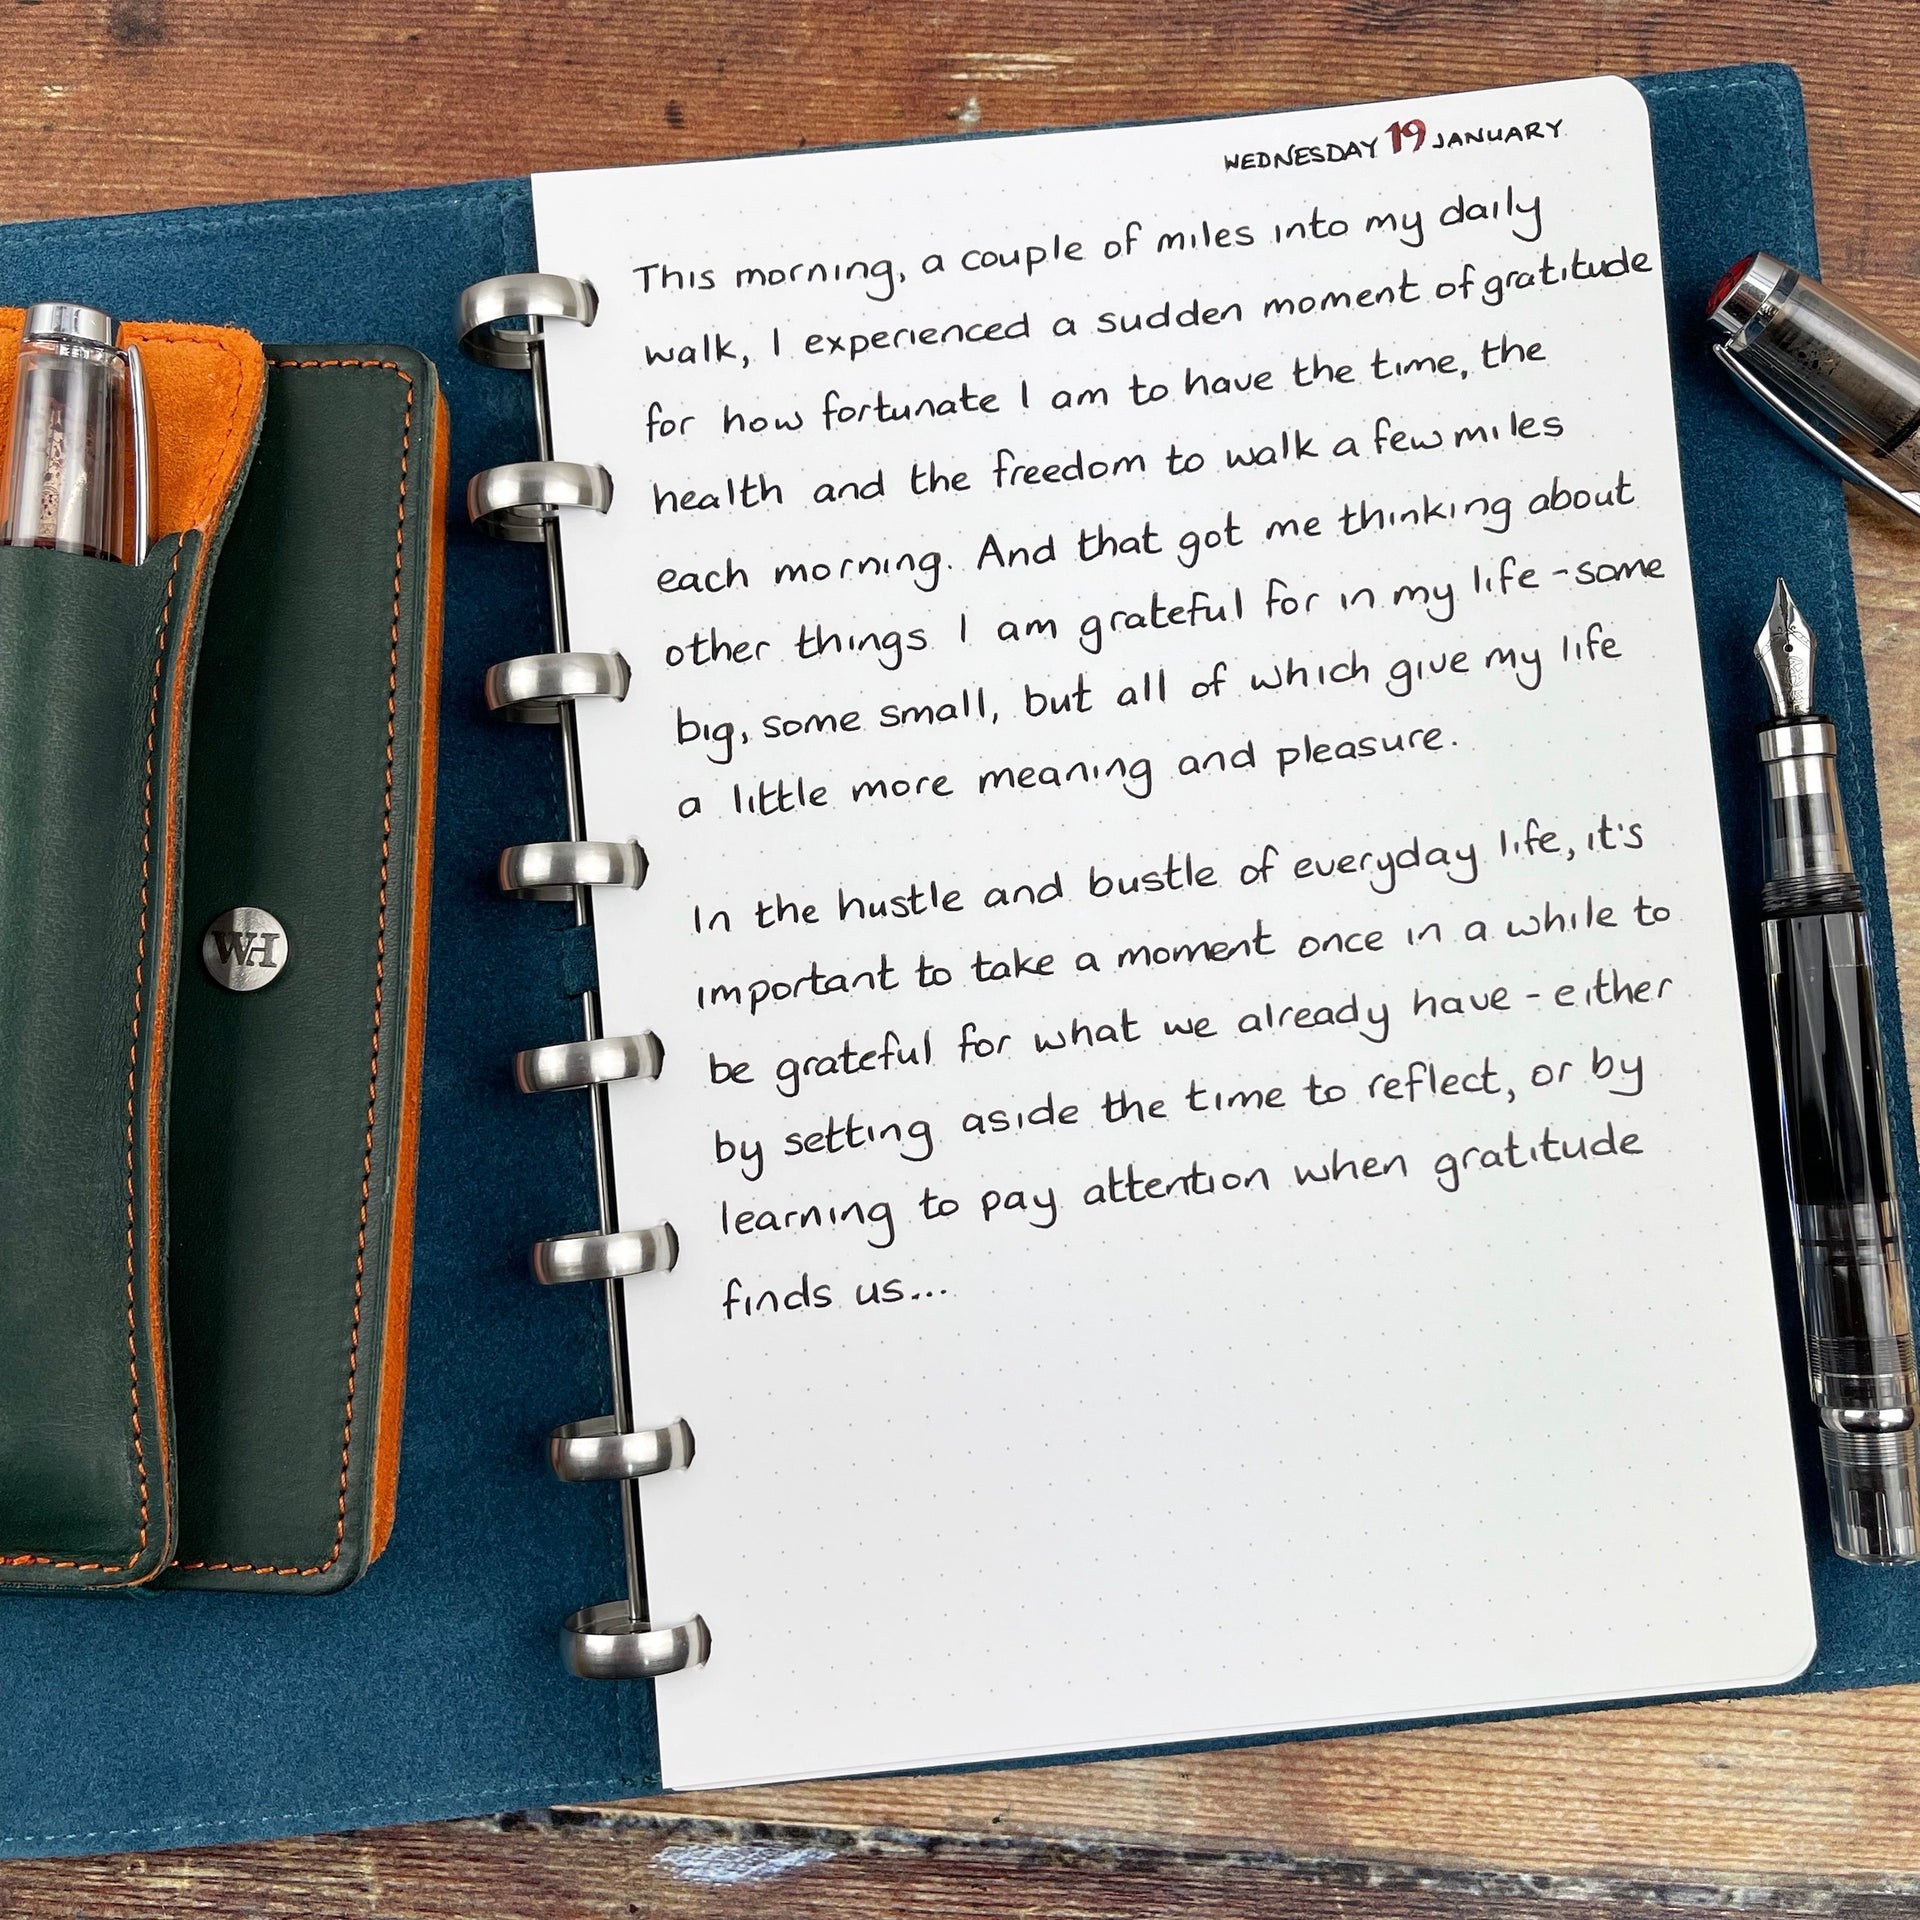 WEDNESDAY 19 JANUARY
This morning, a couple of miles into my daily
walk, I experienced a sudden moment of gratitude
for how fortunate I am to have the time, the
health and the freedom to walk a few miles
each morning. And that got me thinking about
other things I am grateful for in my life - some
big, some small, but all of which give my life
a little more meaning and pleasure.
In the hustle and bustle of everyday life, it's
important to take a moment once in a while to
be grateful for what we already have - either
by setting aside the time to reflect, or by
learning to pay attention when gratitude
finds us...
WH